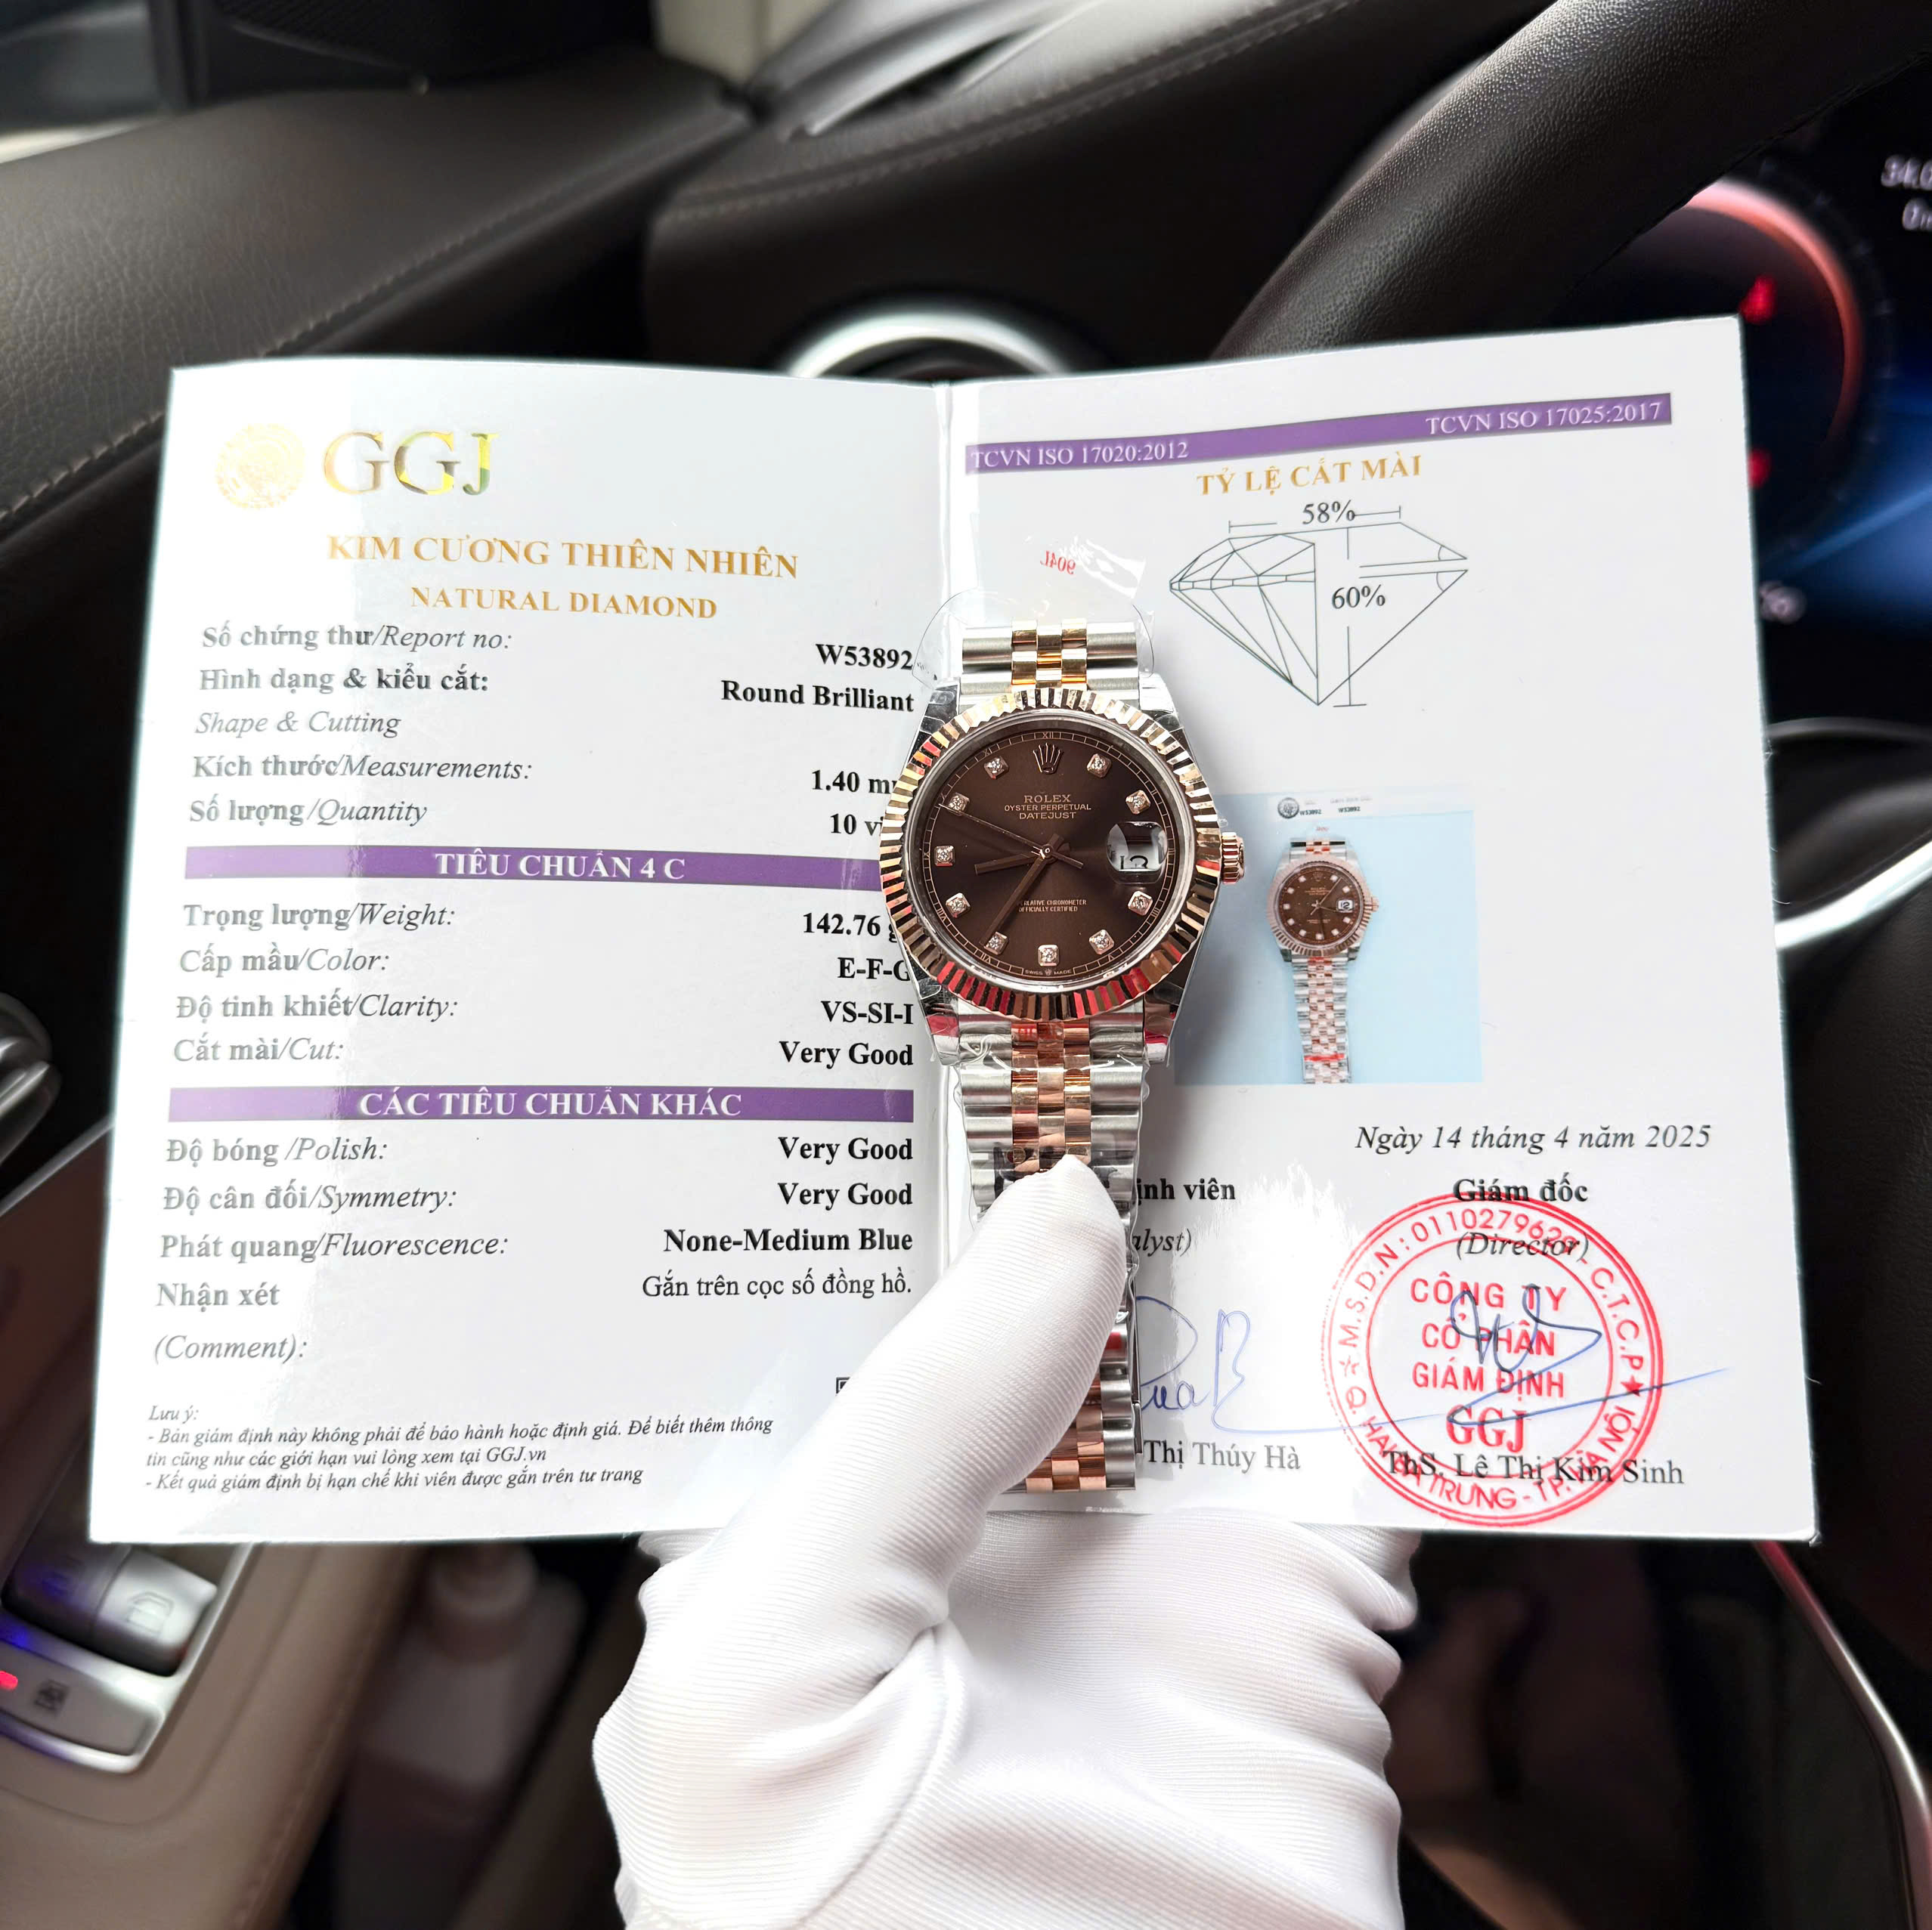 GGJ
KIM CƯƠNG THIÊN NHIÊN
NATURAL DIAMOND
Số chứng thư/Report no: W53892
Hình dạng & kiểu cắt: Round Brilliant
Shape & Cutting
Kích thước/Measurements: 1.40
Số lượng/Quantity 10
TIÊU CHUẨN 4 C
Trọng lượng/Weight: 142.76
Cấp mầu/Color: E-F-G
Độ tinh khiết/Clarity: VS-SI-I
Cắt mài/Cut: Very Good
CÁC TIÊU CHUẨN KHÁC
Độ bóng /Polish: Very Good
Độ cân đối/Symmetry: Very Good
Phát quang/Fluorescence: None-Medium Blue
Nhận xét Gắn trên cọc số đồng hồ.
(Comment):
Lưu ý:
- Bản giám định này không phải để bảo hành hoặc định giá. Để biết thêm thông
tin cũng như các giới hạn vui lòng xem tại GGJ.vn
- Kết quả giám định bị hạn chế khi viên được gắn trên tư trang
TCVN ISO 17020:2012 TCVN ISO 17025:2017
TỶ LỆ CẮT MÀI
58%
60%
904L
ROLEX
OYSTER PERPETUAL
DATEJUST
OFFICIALLY CERTIFIED
SWISS MADE
W53892
Ngày 14 tháng 4 năm 2025
viên Giám đốc
(Director)
M.S.D.N: C.T.C.P
CÔNG TY
CỔ PHẦN
GIÁM ĐỊNH
GGJ
Q. HAI BÀ TRƯNG - TP. HÀ NỘI
Thị Thúy Hà ThS. Lê Thị Kim Sinh